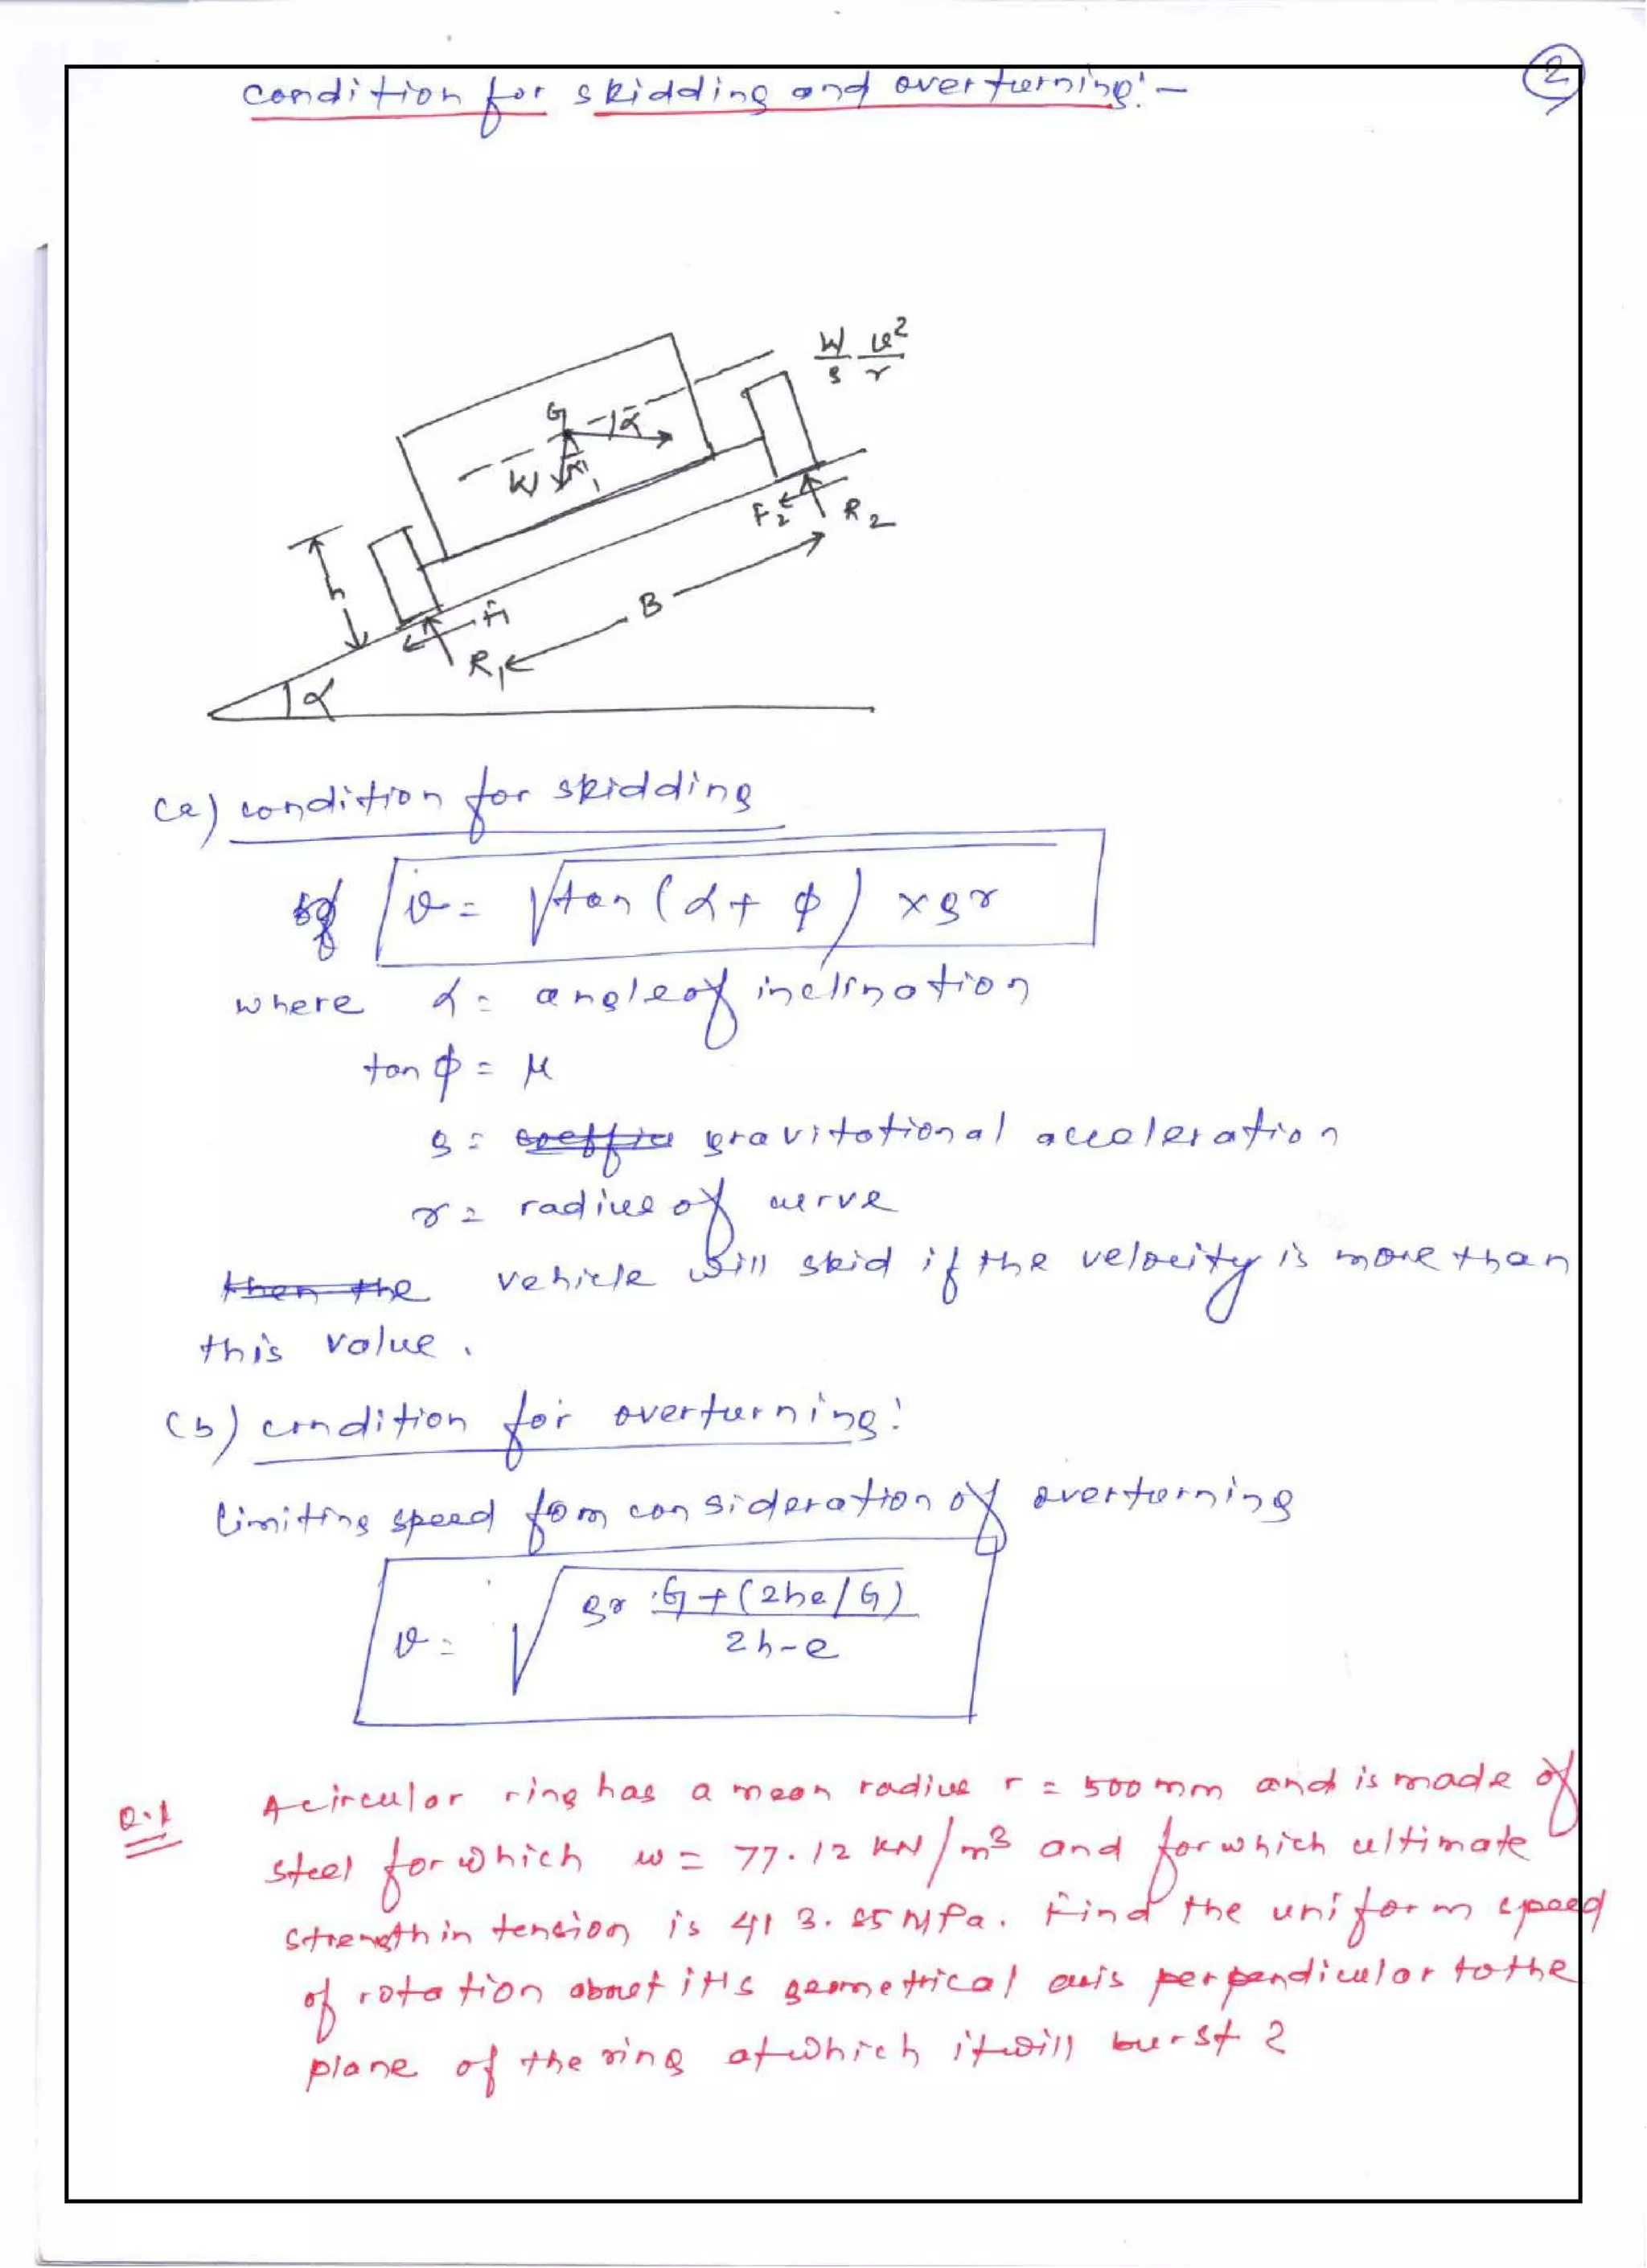 2
condition for skidding and overturning:-
W/g v²/r
G α
W α
h
F2 R2
F1 B
R1
α
(a) condition for skidding
v = √tan(α + φ) × gr
where α = angle of inclination
tan φ = μ
g = coeffici gravitational acceleration
r = radius of curve
then the vehicle will skid if the velocity is more than
this value.
(b) condition for overturning:
Limiting speed fom consideration of overturning
v = √gr . G + (2he/G) / 2h-e
Q.1 A circular ring has a mean radius r = 500 mm and is made of
steel for which w = 77.12 kN/m³ and for which ultimate
strength in tension is 413.85 MPa. Find the uniform speed
of rotation about its geometrical axis perpendicular to the
plane of the ring at which it will burst ?